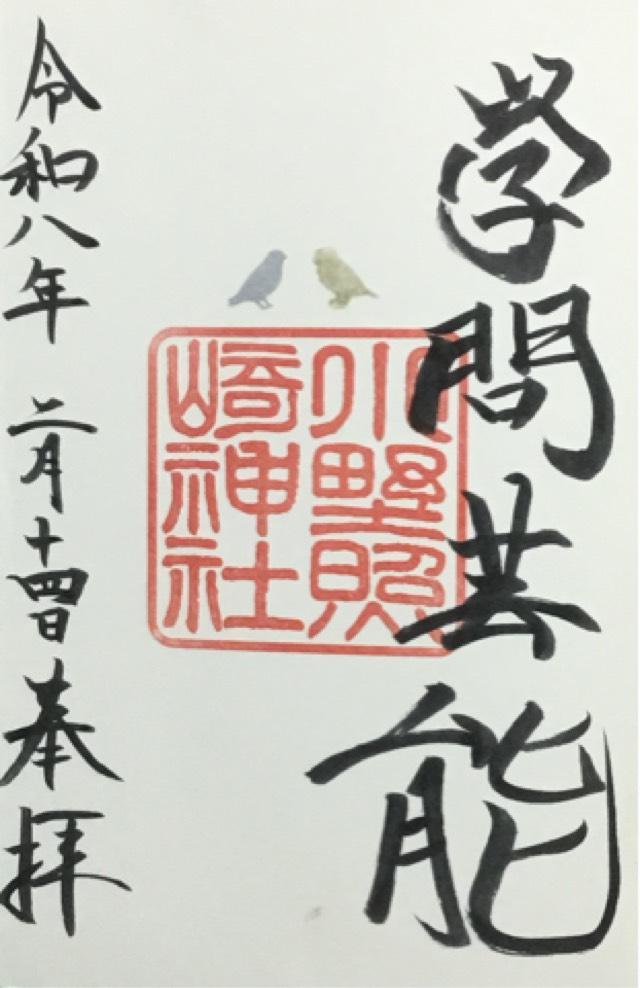 學問芸能
小野照
崎神社
令和八年 二月十四日 奉拝